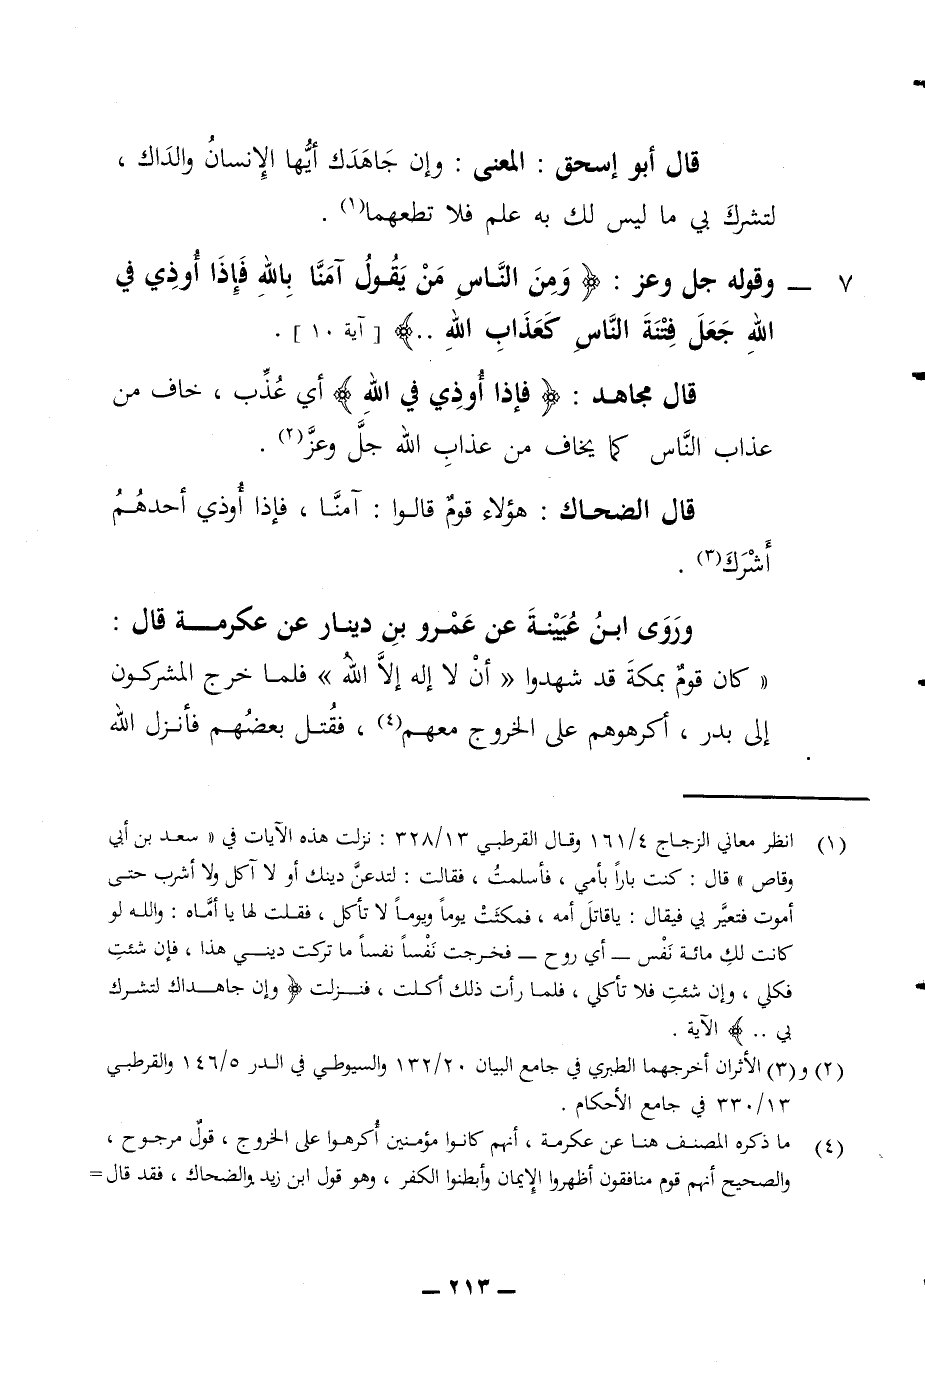 قال أبو إسحق : المعنى : وإن جَاهَدَك أيُّها الإِنسانُ والدَاك ،
لتشركَ بي ما ليس لك به علم فلا تطعهما(١) .
٧ — وقوله جل وعز : ﴿ وَمِنَ النَّاسِ مَنْ يَقُولُ آمَنَّا بِاللهِ فَإِذَا أُوذِي في
اللهِ جَعَلَ فِتْنَةَ النَّاسِ كَعَذَابِ اللهِ ..﴾ [ آية ١٠ ] .
قال مجاهد : ﴿ فإذا أُوذِي في اللهِ ﴾ أي عُذِّب ، خاف من
عذاب النَّاس كما يخاف من عذابِ الله جلَّ وعزَّ(٢) .
قال الضحاك : هؤلاء قومٌ قالوا : آمنَّا ، فإذا أُوذي أحدهُمُ
أَشْرَكَ(٣) .
ورَوَى ابنُ عُيَيْنةَ عن عَمْرو بنِ دينار عن عكرمة قال :
« كان قومٌ بمكةَ قد شهدوا « أنْ لا إله إلاَّ اللهُ » فلما خرج المشركون
إلى بدر ، أكرهوهم على الخروج معهم(٤) ، فقُتل بعضُهم فأنزل الله
(١) انظر معاني الزجاج ١٦١/٤ وقال القرطبي ٣٢٨/١٣ : نزلت هذه الآيات في « سعد بن أبي
وقاص » قال : كنت باراً بأمي ، فأسلمتُ ، فقالت : لتدعنَّ دينك أو لا آكل ولا أشرب حتى
أموت فتعيَّر بي فيقال : ياقاتلَ أمه ، فمكثَتْ يوماً ويوماً لا تأكل ، فقلت لها يا أمَّاه : والله لو
كانت لكِ مائة نَفْس — أي روح — فخرجت نَفْساً نفساً ما تركت ديني هذا ، فإن شئتِ
فكلي ، وإن شئتِ فلا تأكلي ، فلما رأت ذلك أكلت ، فنزلت ﴿ وإن جاهداك لتشرك
بي .. ﴾ الآية .
(٢) و(٣) الأثران أخرجهما الطبري في جامع البيان ١٣٢/٢٠ والسيوطي في الدر ١٤٦/٥ والقرطبي
٣٣٠/١٣ في جامع الأحكام .
(٤) ما ذكره المصنف هنا عن عكرمة ، أنهم كانوا مؤمنين أُكرهوا على الخروج ، قولٌ مرجوح ،
والصحيح أنهم قوم منافقون أظهروا الإِيمان وأبطنوا الكفر ، وهو قول ابن زيد والضحاك ، فقد قال=
— ٢١٣ —